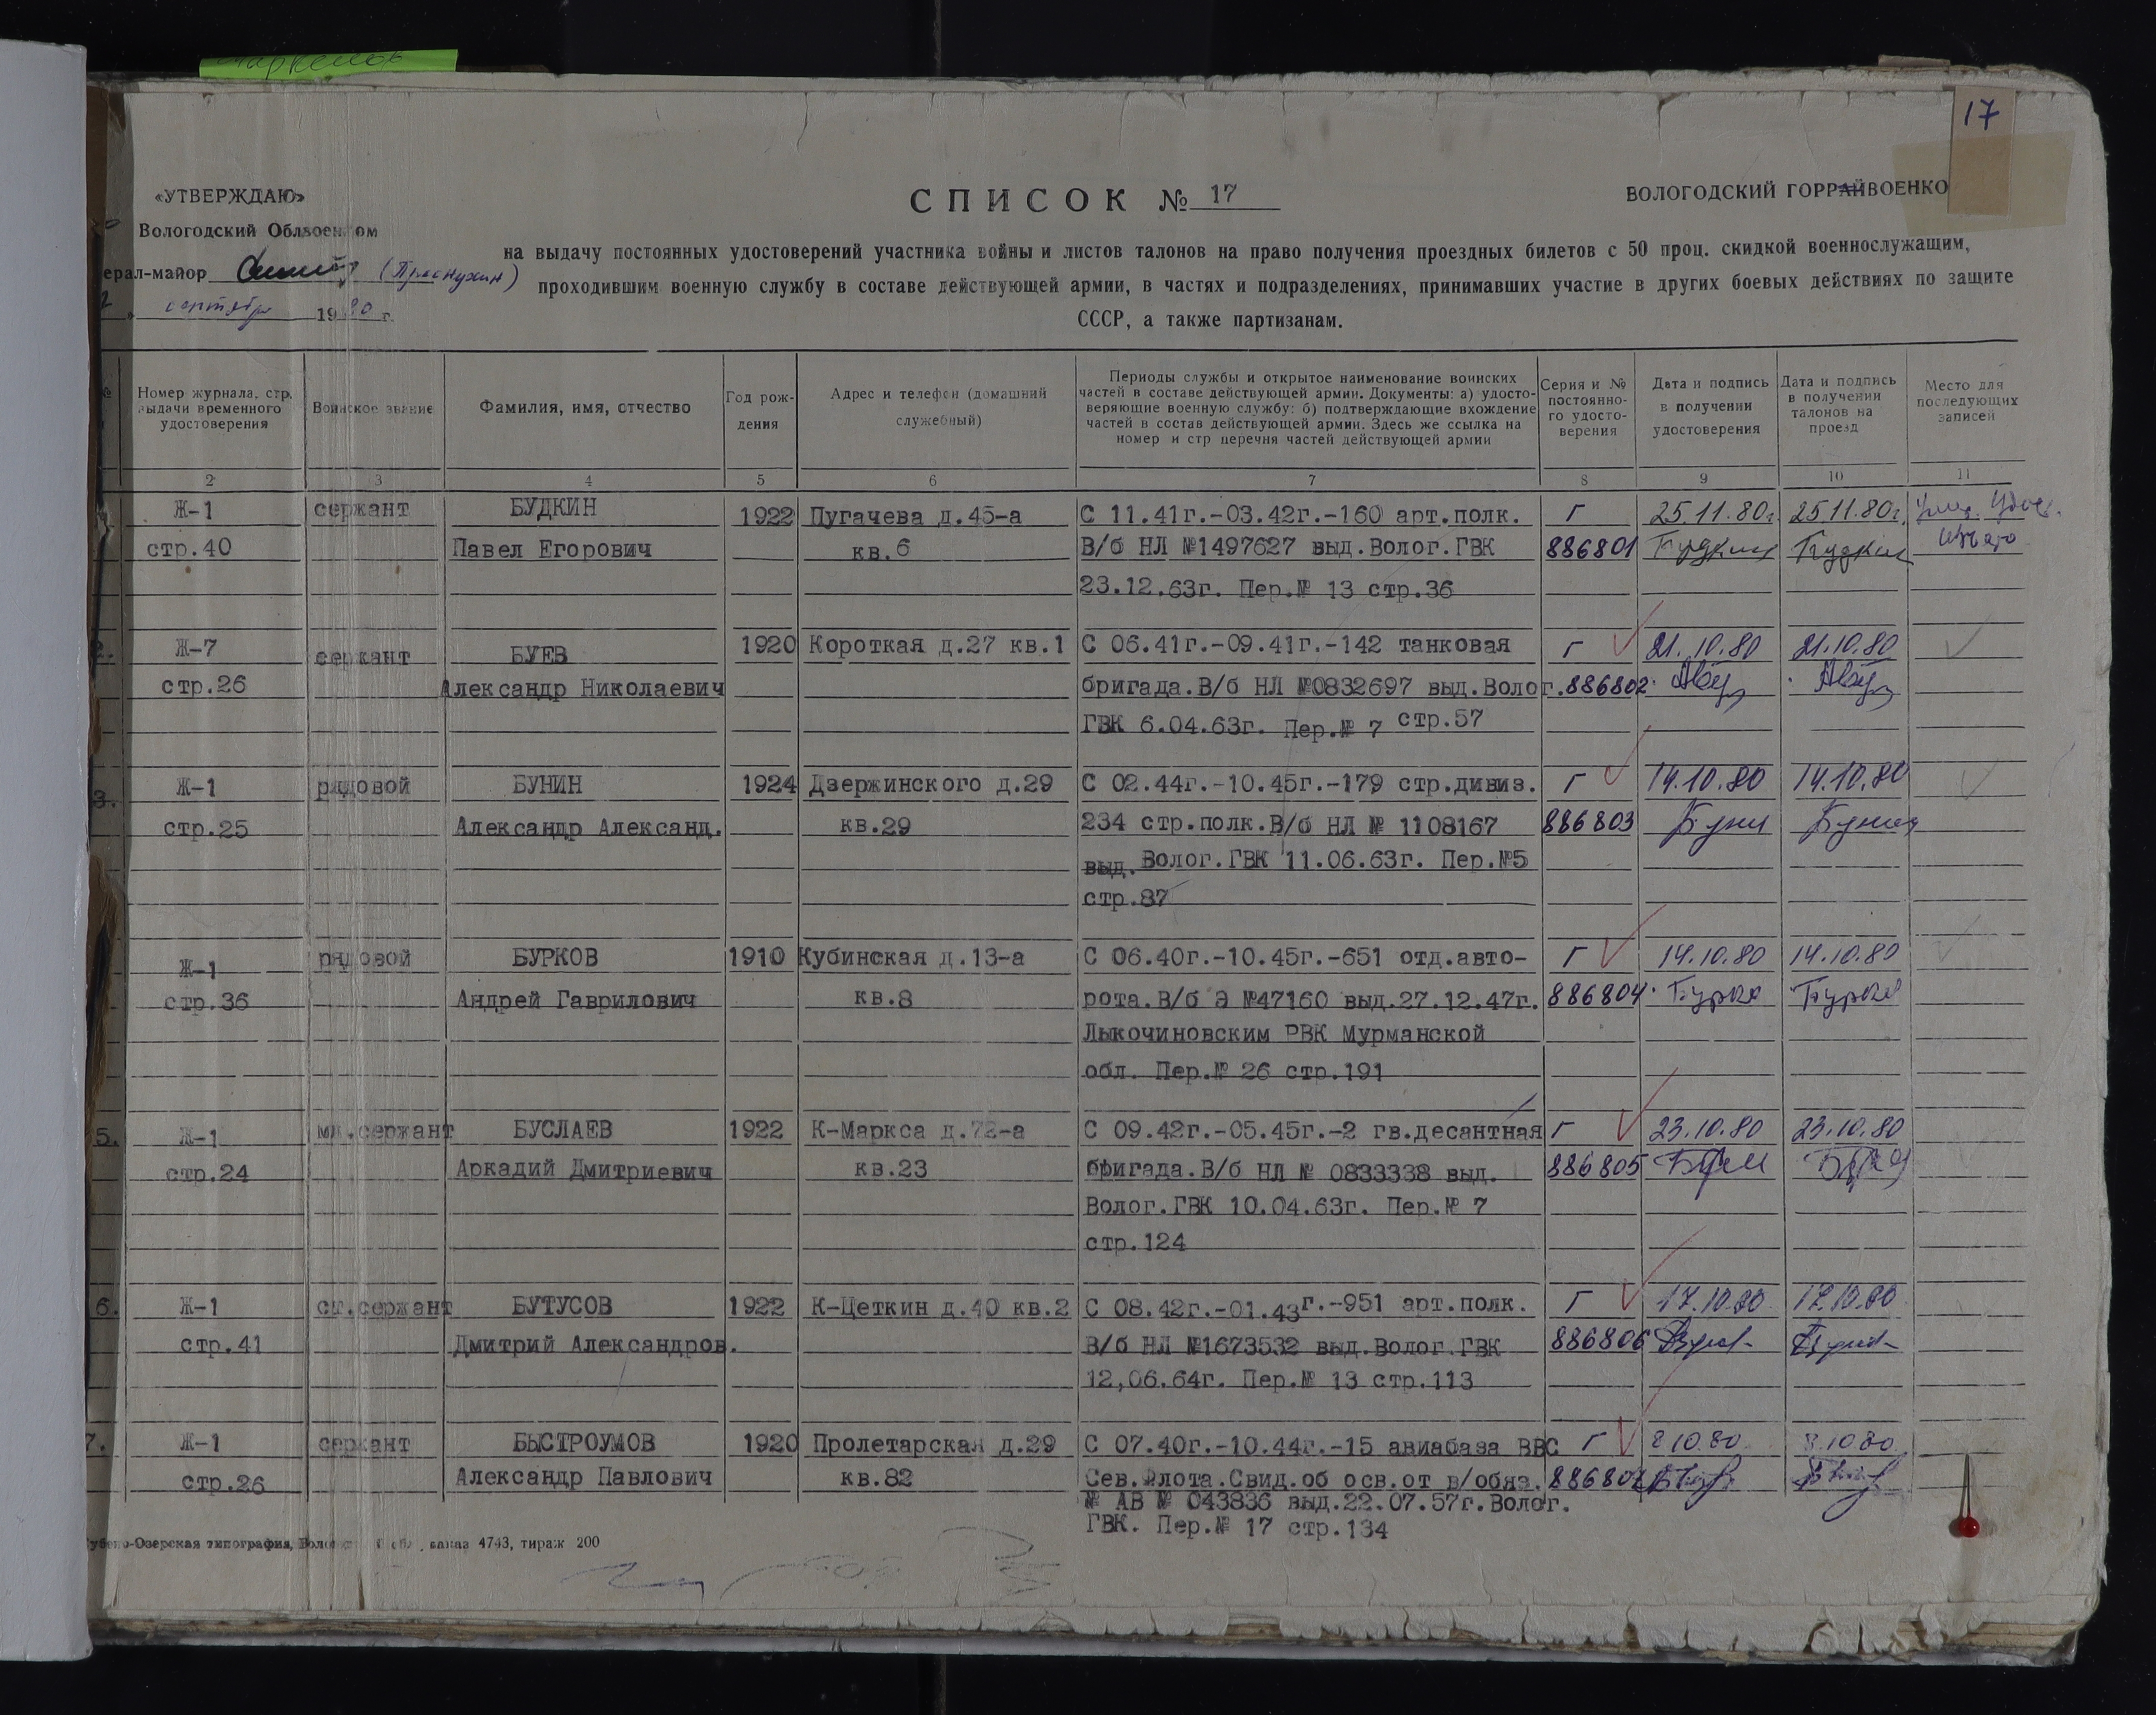 17
«УТВЕРЖДАЮ»
СПИСОК № 17
ВОЛОГОДСКИЙ ГОРРАЙВОЕНКО
Вологодский Облвоенком
на выдачу постоянных удостоверений участника войны и листов талонов на право получения проездных билетов с 50 проц. скидкой военнослужащим,
ерал-майор
проходившим военную службу в составе действующей армии, в частях и подразделениях, принимавших участие в других боевых действиях по защите
сентября 1980 г.
СССР, а также партизанам.
№
Номер журнала, стр.
выдачи временного
удостоверения
Воинское звание
Фамилия, имя, отчество
Год рож-
дения
Адрес и телефон (домашний
служебный)
Периоды службы и открытое наименование воинских
частей в составе действующей армии. Документы: а) удосто-
веряющие военную службу: б) подтверждающие вхождение
частей в состав действующей армии. Здесь же ссылка на
номер и стр перечня частей действующей армии
Серия и №
постоянно-
го удосто-
верения
Дата и подпись
в получении
удостоверения
Дата и подпись
в получении
талонов на
проезд
Место для
последующих
записей
2 3 4 5 6 7 8 9 10 11
Ж-1 сержант БУДКИН 1922 Пугачева д.45-а С 11.41г.-03.42г.-160 арт.полк. Г 25.11.80г. 25.11.80г.
стр.40 Павел Егорович кв.6 В/б НЛ №1497627 выд.Волог.ГВК 886801 Будкин Будкин
23.12.63г. Пер.№ 13 стр.36
2. Ж-7 сержант БУЕВ 1920 Короткая д.27 кв.1 С 06.41г.-09.41г.-142 танковая Г 21.10.80 21.10.80
стр.26 Александр Николаевич бригада.В/б НЛ №0832697 выд.Волог. 886802
ГВК 6.04.63г. Пер.№ 7 стр.57
3. Ж-1 рядовой БУНИН 1924 Дзержинского д.29 С 02.44г.-10.45г.-179 стр.дивиз. Г 14.10.80 14.10.80
стр.25 Александр Александ. кв.29 234 стр.полк.В/б НЛ № 1108167 886803 Бунин Бунин
выд.Волог.ГВК 11.06.63г. Пер.№5
стр.87
Ж-1 рядовой БУРКОВ 1910 Кубинская д.13-а С 06.40г.-10.45г.-651 отд.авто- Г 14.10.80 14.10.80
стр.36 Андрей Гаврилович кв.8 рота.В/б Э №47160 выд.27.12.47г. 886804
Лыкочиновским РВК Мурманской
обл. Пер.№ 26 стр.191
5. Ж-1 мл.сержант БУСЛАЕВ 1922 К-Маркса д.72-а С 09.42г.-05.45г.-2 гв.десантная Г 23.10.80 23.10.80
стр.24 Аркадий Дмитриевич кв.23 бригада.В/б НЛ № 0833338 выд. 886805
Волог.ГВК 10.04.63г. Пер.№ 7
стр.124
6. Ж-1 ст.сержант БУТУСОВ 1922 К-Цеткин д.40 кв.2 С 08.42г.-01.43г.-951 арт.полк. Г 17.10.80 17.10.80
стр.41 Дмитрий Александров. В/б НЛ №1673532 выд.Волог.ГВК 886806
12,06.64г. Пер.№ 13 стр.113
7. Ж-1 сержант БЫСТРОУМОВ 1920 Пролетарская д.29 С 07.40г.-10.44г.-15 авиабаза ВВС Г 8 10.80 8.10.80
стр.26 Александр Павлович кв.82 Сев.Флота.Свид.об осв.от в/обяз. 886807
№ АВ № 043836 выд.22.07.57г.Волог.
ГВК. Пер.№ 17 стр.134
Кубено-Озерская типография, заказ 4743, тираж 200